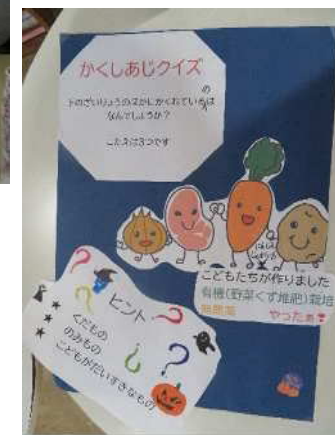 かくしあじクイズ
下のざいりょうのえがにかくれているのは
なんでしょうか？
こたえは3つです
こどもたちが作りました
有機(野菜くず堆肥)栽培
無農薬
やったぁ
ヒント
くだもの
のみもの
こどもがだいすきなもの